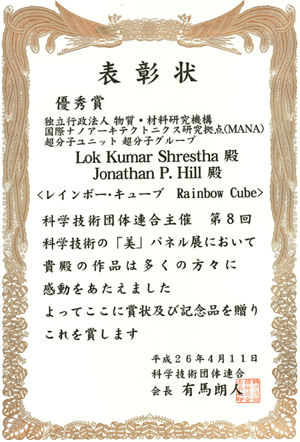 表彰状
優秀賞
独立行政法人 物質・材料研究機構
国際ナノアーキテクトニクス研究拠点(MANA)
超分子ユニット 超分子グループ
Lok Kumar Shrestha 殿
Jonathan P. Hill 殿
<レインボー・キューブ Rainbow Cube>
科学技術団体連合主催 第8回
科学技術の「美」パネル展において
貴殿の作品は多くの方々に
感動をあたえました
よってここに賞状及び記念品を贈り
これを賞します
平成26年4月11日
科学技術団体連合
会長 有馬朗人